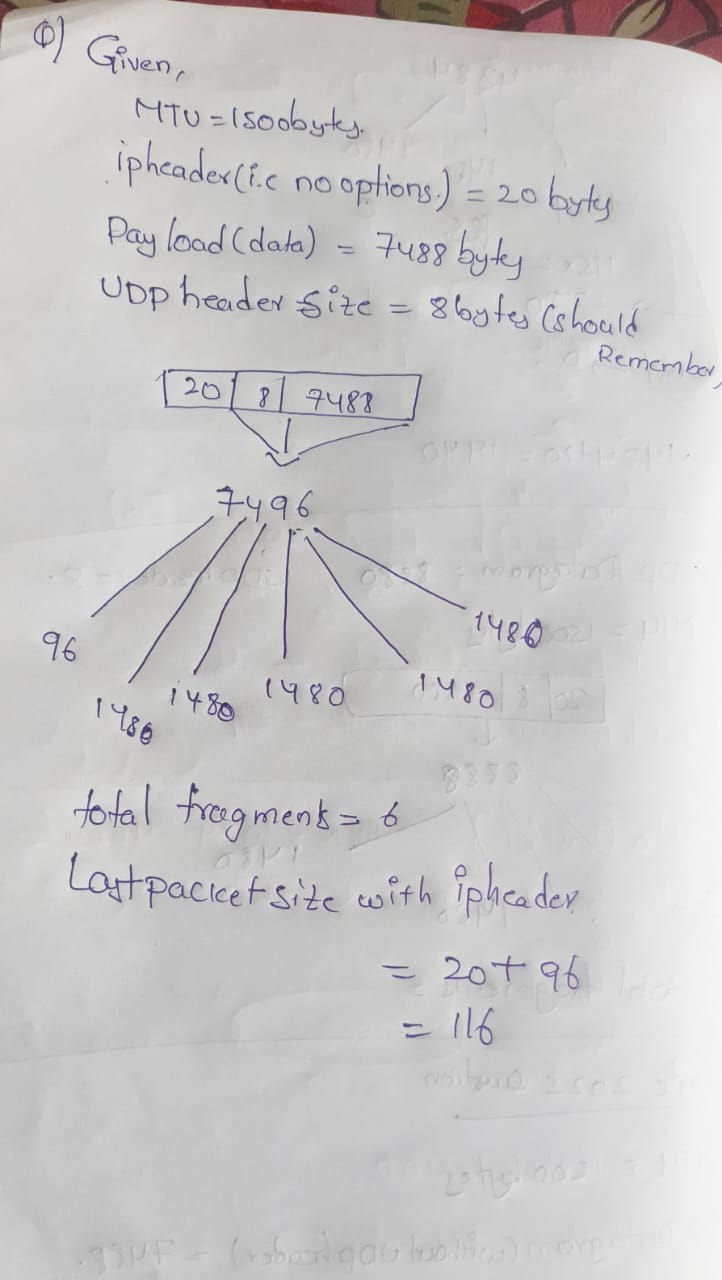 Q) Given,
MTU = 1500bytes.
ipheader (i.e no options.) = 20 bytes
Pay load (data) = 7488 bytes
UDP header size = 8 bytes (should
Remember,
20 8 7488
7496
96 1480 1480 1480 1480 1480
total fragments = 6
Last packet size with ipheader
= 20 + 96
= 116